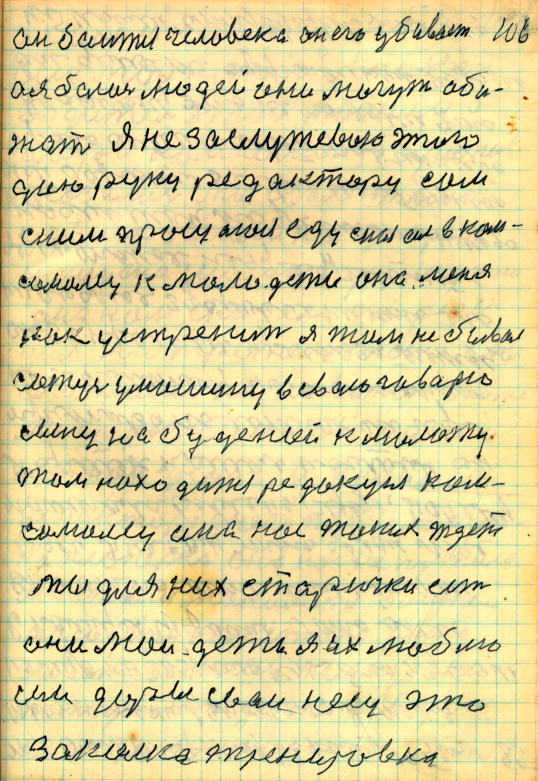 он болти человека он его убивает 106
а я болои людей они могут оби-
жат Я не заслужеваю этого
даю руку редактору сом
сним прощаюсь еду в ком-
сомолу к молодеже она меня
как устренит я там не бывал
сажус у машину в свою говарю
сыну на буденей к моложу
там находитя редакцыя ком-
сомолу она нас таких ждет
мы для них старички ест
они мои дети я их люблю
сам душы сваи несу это
закалка тренировка